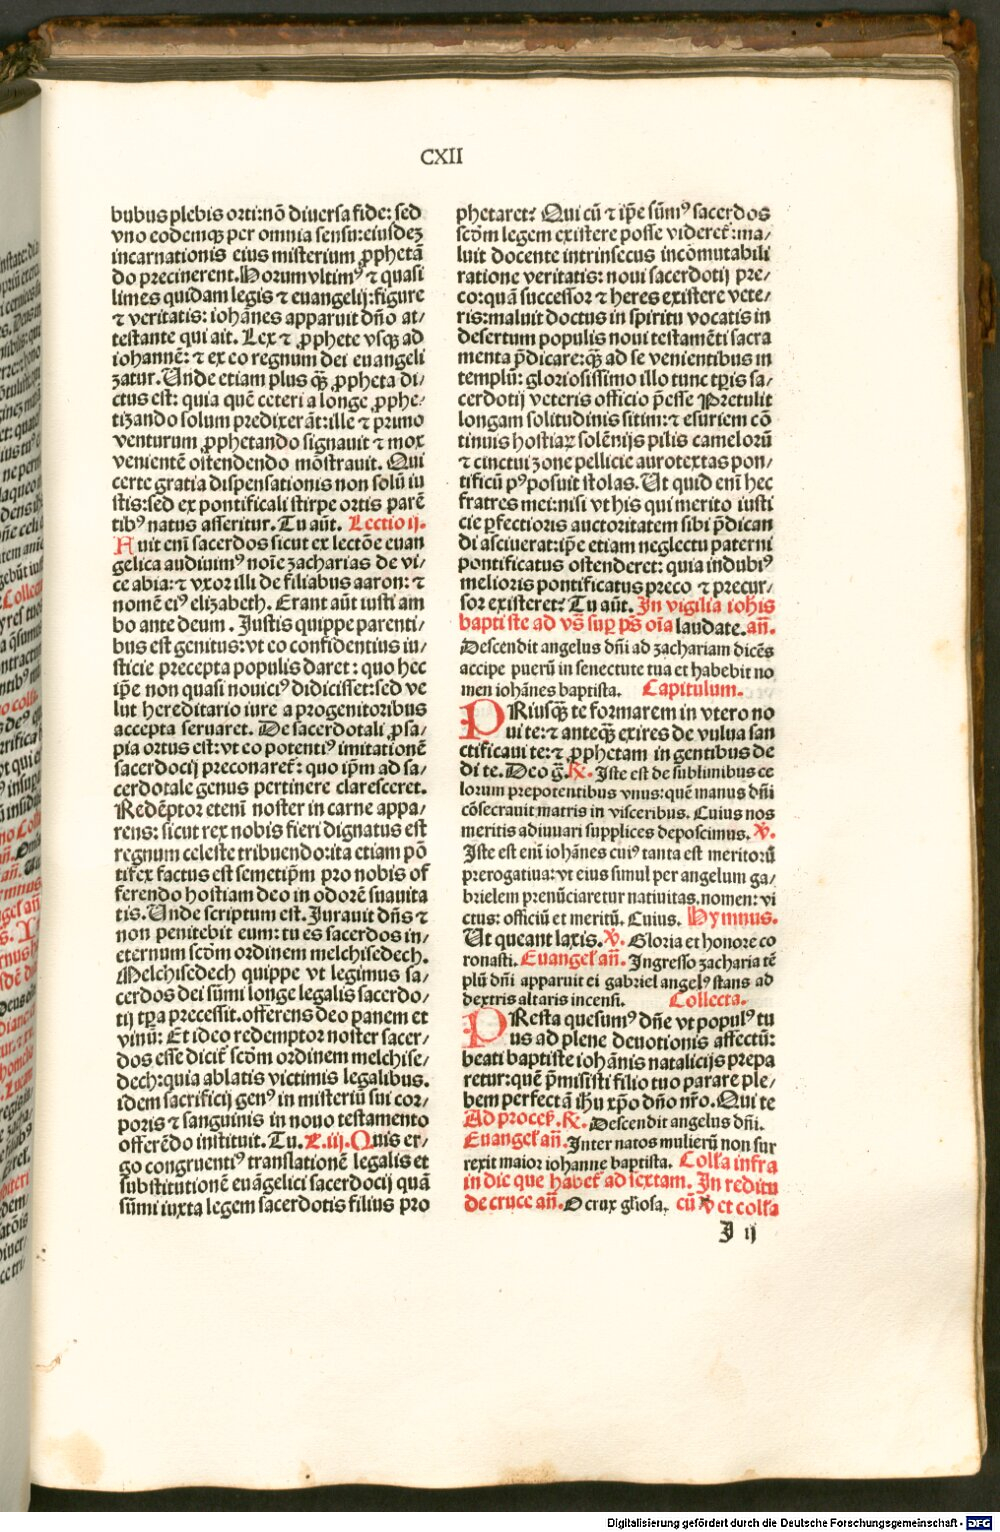 CXII
bubus plebis orti:nō diuersa fide: sed
vno eodemqꝫ per omnia sensu:eiusdeꝫ
incarnationis eius misterium ꝓphetā
do precinerent.Horum vltimꝰ ⁊ quasi
limes quidam legis ⁊ euangelij:figure
⁊ veritatis: iohānes apparuit dn̄o at⸗
testante qui ait. Lex ⁊ ꝓphete vsqꝫ ad
iohannē: ⁊ ex eo regnum dei euangeli
zatur.Unde etiam plus qꝫ̄ ꝓpheta di⸗
ctus est: quia quē ceteri a longe ꝓphe⸗
tizando solum predixerāt:ille ⁊ primo
venturum ꝓphetando signauit ⁊ mox
venientē ostendendo mōstrauit. Qui
certe gratia dispensationis non solū iu
stis:sed ex pontificali stirpe ortis parē
tibꝰ natus asseritur. Tu aūt. Lectio ij.
Fuit enī sacerdos sicut ex lectōe euan
gelica audiuimꝰ noīe zacharias de vi⸗
ce abia: ⁊ vxor illi de filiabus aaron: ⁊
nomē eiꝰ elizabeth. Erant aūt iusti am
bo ante deum . Justis quippe parenti⸗
bus est genitus: vt eo confidentius iu⸗
sticie precepta populis daret: quo hec
ip̄e non quasi nouiciꝰ didicisset:sed ve
lut hereditario iure a progenitoribus
accepta seruaret. De sacerdotali ꝓsa⸗
pia ortus est: vt eo potentiꝰ imitationē
sacerdocij preconaret̄: quo ip̄m ad sa⸗
cerdotale genus pertinere claresceret.
Redēptor etenī noster in carne appa⸗
rens: sicut rex nobis fieri dignatus est
regnum celeste tribuendo:ita etiam pō
tifex factus est semetip̄m pro nobis of
ferendo hostiam deo in odorē suauita
tis.Unde scriptum est. Jurauit dn̄s ⁊
non penitebit eum: tu es sacerdos in⸗
eternum scd̄m ordinem melchisedech.
Melchisedech quippe vt legimus sa⸗
cerdos dei sūmi longe legalis sacerdo⸗
tij tp̄a precessit.offerens deo panem et
vinū: Et ideo redemptor noster sacer⸗
dos esse dicit̄ scd̄m ordinem melchise⸗
dech:quia ablatis victimis legalibus.
idem sacrificij genꝰ in misteriū sui cor⸗
poris ⁊ sanguinis in nouo testamento
offerēdo instituit. Tu. L.iij. Quis er⸗
go congruentiꝰ translationē legalis et
substitutionē euāgelici sacerdocij quā
sūmi iuxta legem sacerdotis filius pro
phetaret? Qui cū ⁊ ip̄e sūmꝰ sacerdos
scd̄m legem existere posse videret̄:ma⸗
luit docente intrinsecus incōmutabili
ratione veritatis: noui sacerdotij pre⸗
co:quā successor ⁊ heres existere vete⸗
ris:maluit doctus in spiritu vocatis in
desertum populis noui testamēti sacra
menta p̄dicare:qꝫ̄ ad se venientibus in
templū: gloriosissimo illo tunc tp̄is sa⸗
cerdotij veteris officio p̄esse Pretulit
longam solitudinis sitim:⁊ esuriem cō
tinuis hostiaꝝ solēnijs pilis camelorū
⁊ cinctui zone pellicie aurotextas pon⸗
tificū pꝰposuit stolas. Ut quid enī hec
fratres mei:nisi vt his qui merito iusti
cie ꝑfectioris auctoritatem sibi p̄dican
di asciuerat:ip̄e etiam neglectu paterni
pontificatus ostenderet: quia indubiꝰ
melioris pontificatus preco ⁊ precur⸗
sor existeret? Tu aūt. In vigilia ioh̄is
baptiste ad vs̄ sup̱ ps̄ oīa laudate.an̄.
Descendit angelus dn̄i ad zachariam dicēs
accipe puerū in senectute tua et habebit no
men iohānes baptista. Capitulum.
PRiusqꝫ̄ te formarem in vtero no
ui te:⁊ anteqꝫ̄ exires de vulua san
ctificaui te:⁊ ꝓphetam in gentibus de
di te.Deo g̅.℟. Iste est de sublimibus ce
lorum prepotentibus vnus: quē manus dn̄i
cōsecrauit matris in visceribus. Cuius nos
meritis adiuuari supplices deposcimus. ℣.
Iste est enī iohānes cuiꝰ tanta est meritorū
prerogatiua: vt eius simul per angelum ga⸗
brielem prenūciaretur natiuitas.nomen: vi
ctus: officiū et meritū. Cuius. Hymnus.
Ut queant laxis. ℣. Gloria et honore co
ronasti. Euangeł an̄. Ingresso zacharia tē
plū dn̄i apparuit ei gabriel angelꝰ stans ad
dextris altaris incensi. Collecta.
PResta quesumꝰ dn̄e vt populꝰ tu
us ad plene deuotionis affectū:
beati baptiste iohānis natalicijs prepa
retur:quē p̄misisti filio tuo parare ple⸗
bem perfectā ih̄u xp̄o dn̄o nr̄o. Qui te
Ad proceſ. ℟. Descendit angelus dn̄i.
Euangeł an̄. Inter natos mulierū non sur
rexit maior iohanne baptista. Colłā infra
in die que habet̄ ad sextam. In reditu
de cruce an̄. O crux gl̄iosa. cū ℣ et colłā
J ij
Digitalisierung gefördert durch die Deutsche Forschungsgemeinschaft - DFG